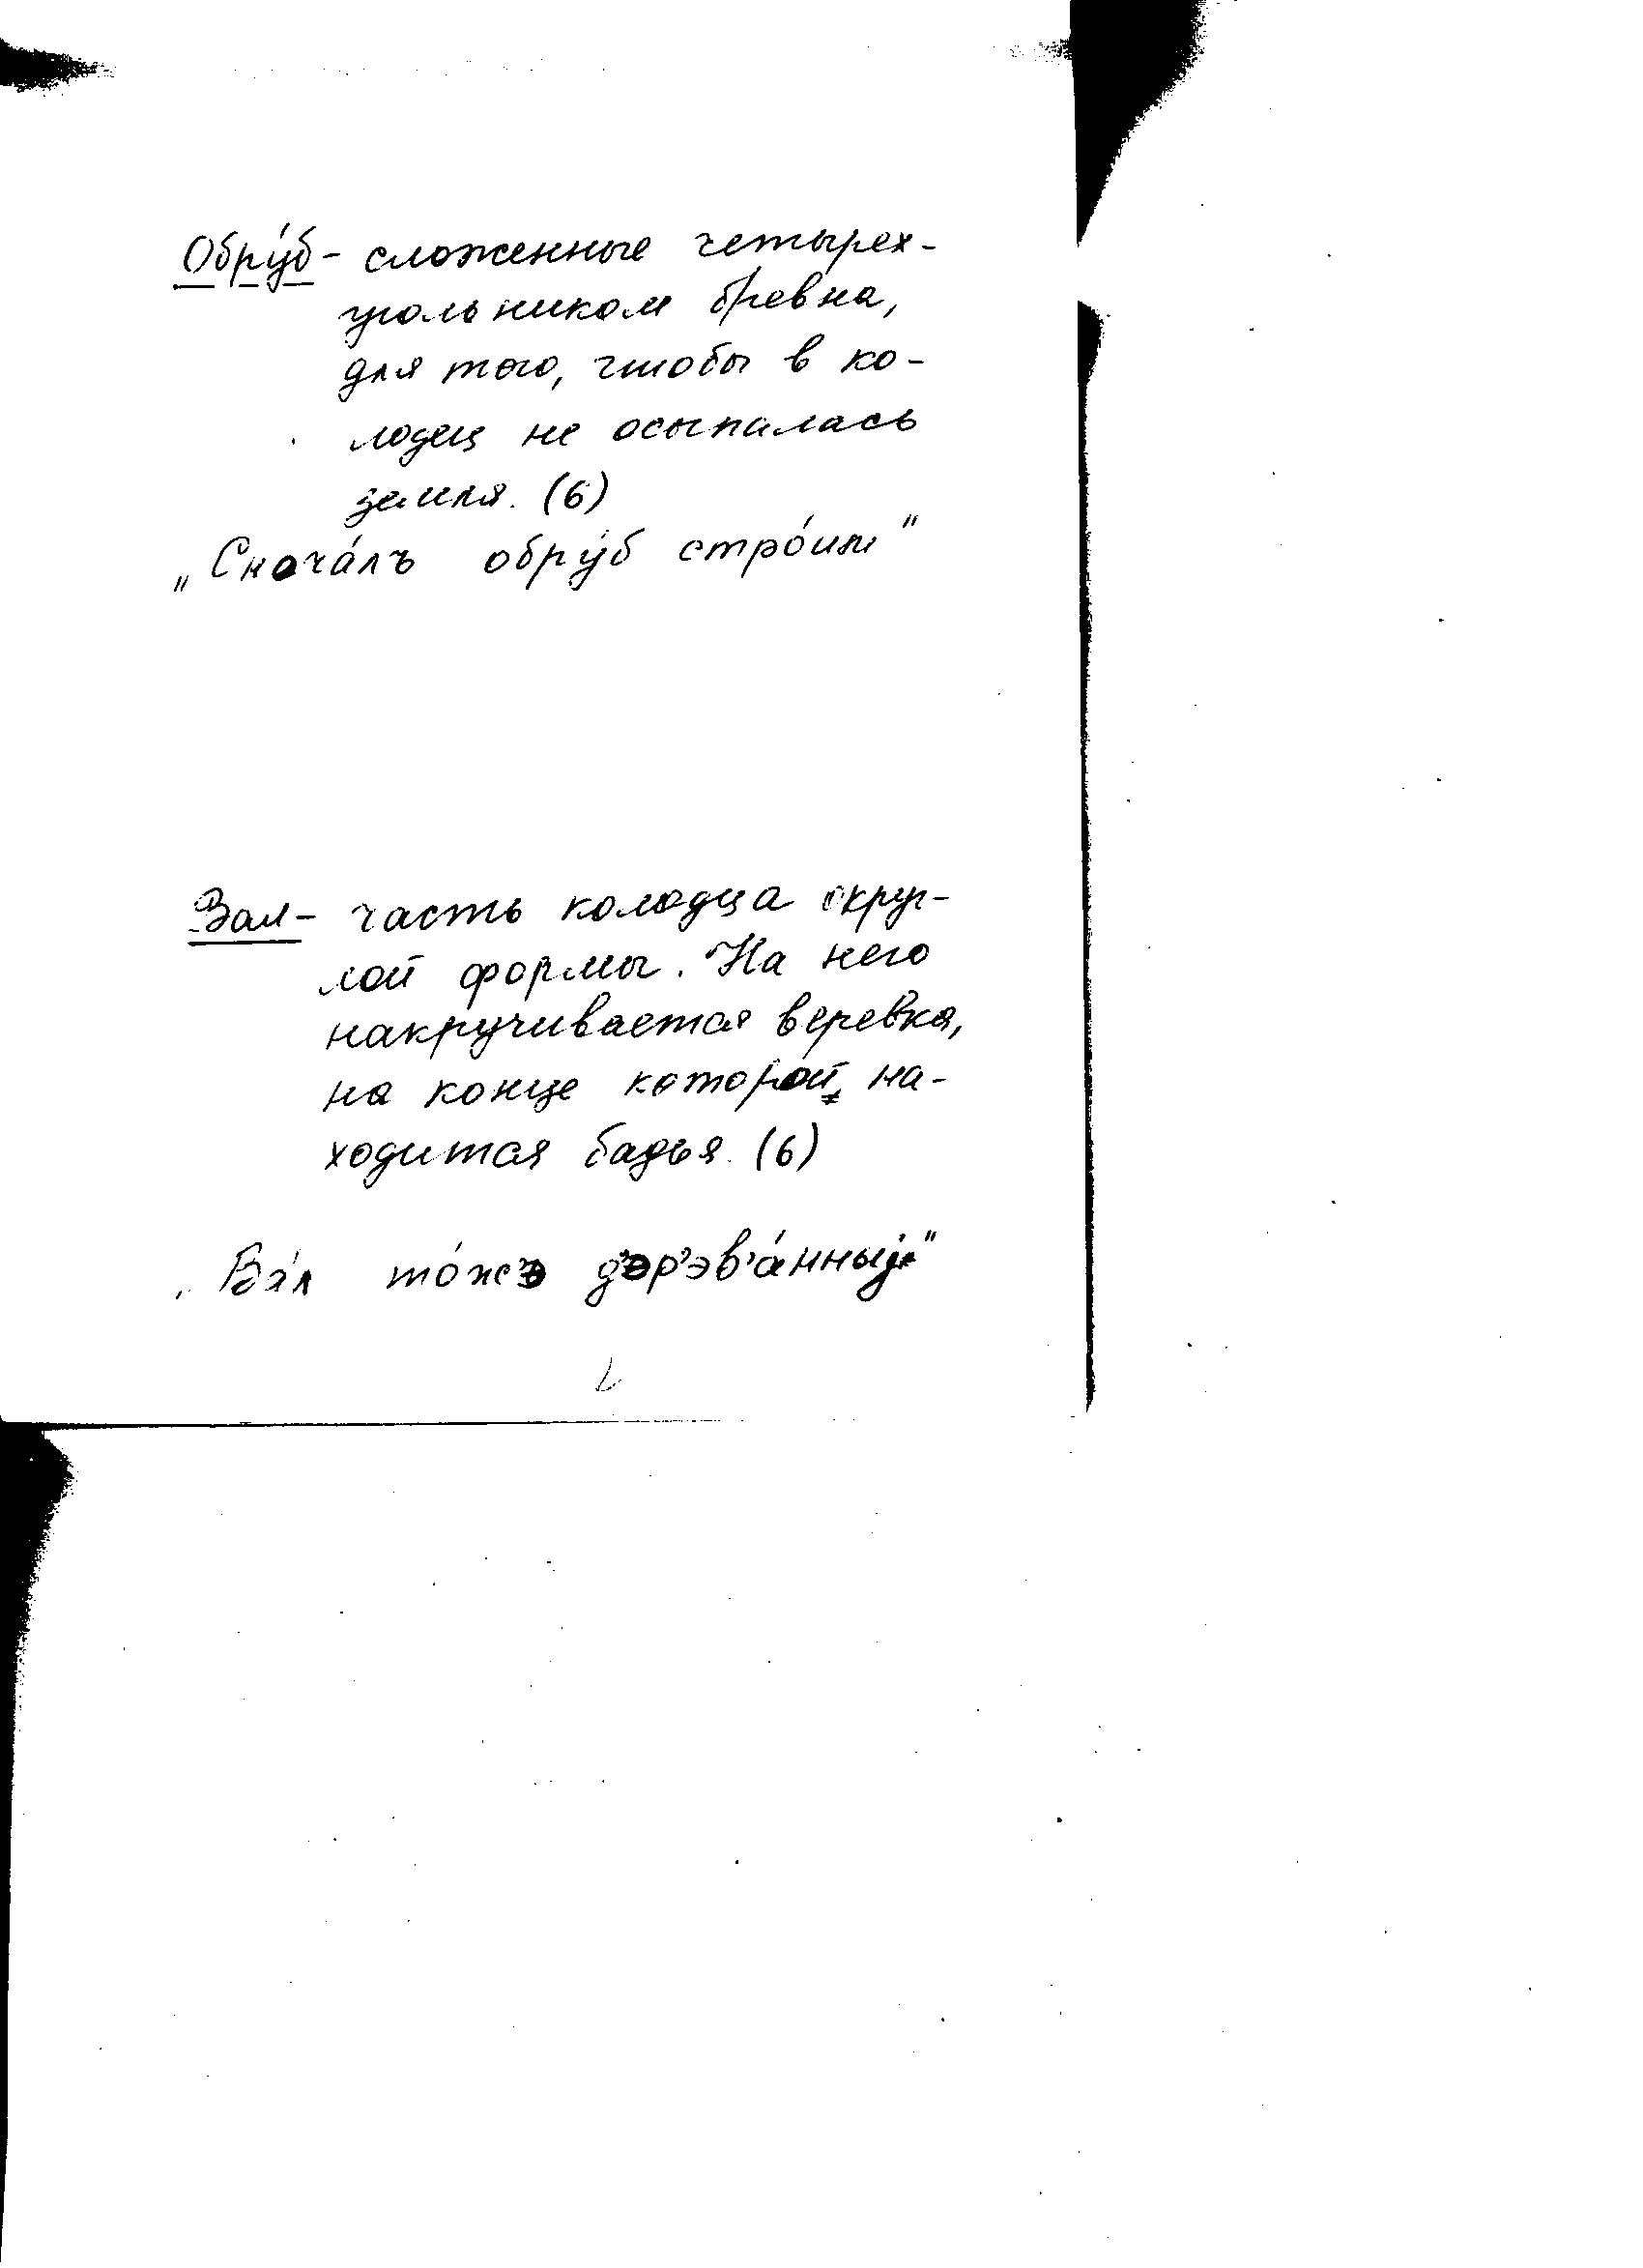 Обру́б - сложенные четырех-
угольником бревна,
для того, чтобы в ко-
лодец не осыпалась
земля. (6)
„Сноча́лъ обру́б стро́им"
Вал - часть колодца округ-
лой формы. На него
накручивается веревка,
на конце которой на-
ходится бадья. (6)
„Ва́л то́жэ д'эр'эв'а́нныj"